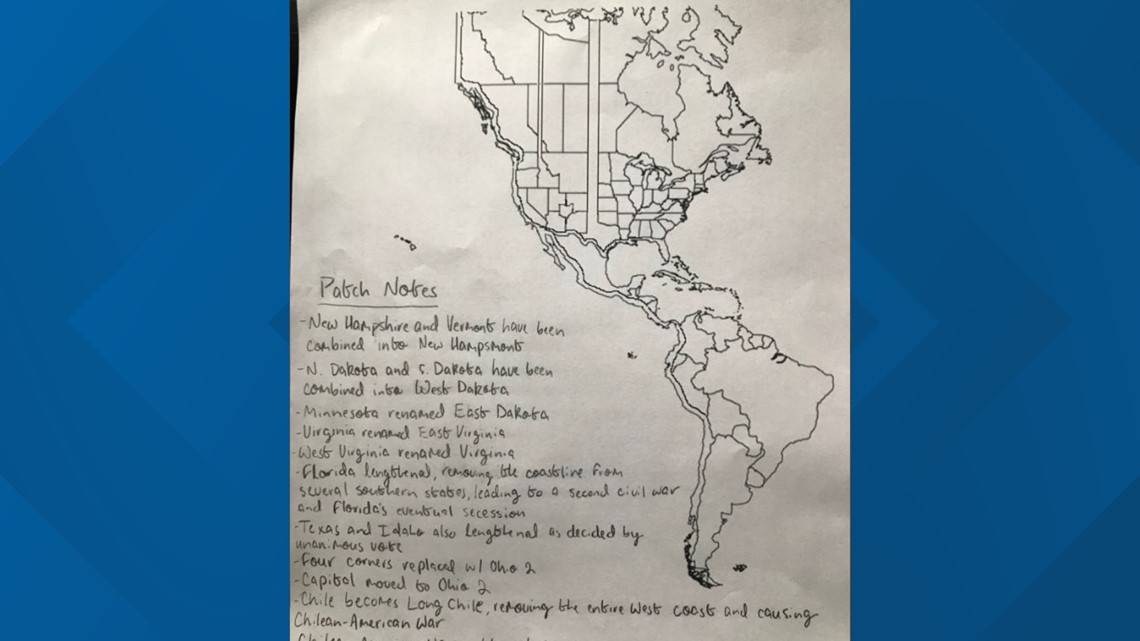 Patch Notes
- New Hampshire and Vermont have been
combined into New Hampsmont
- N. Dakota and S. Dakota have been
combined into West Dakota
- Minnesota renamed East Dakota
- Virginia renamed East Virginia
- West Virginia renamed Virginia
- Florida lengthened, removing the coastline from
several southern states, leading to a second civil war
and Florida's eventual secession
- Texas and Idaho also lengthened as decided by
unanimous vote
- Four corners replaced w/ Ohio 2
- Capital moved to Ohio 2
- Chile becomes Long Chile, removing the entire West coast and causing
Chilean-American War